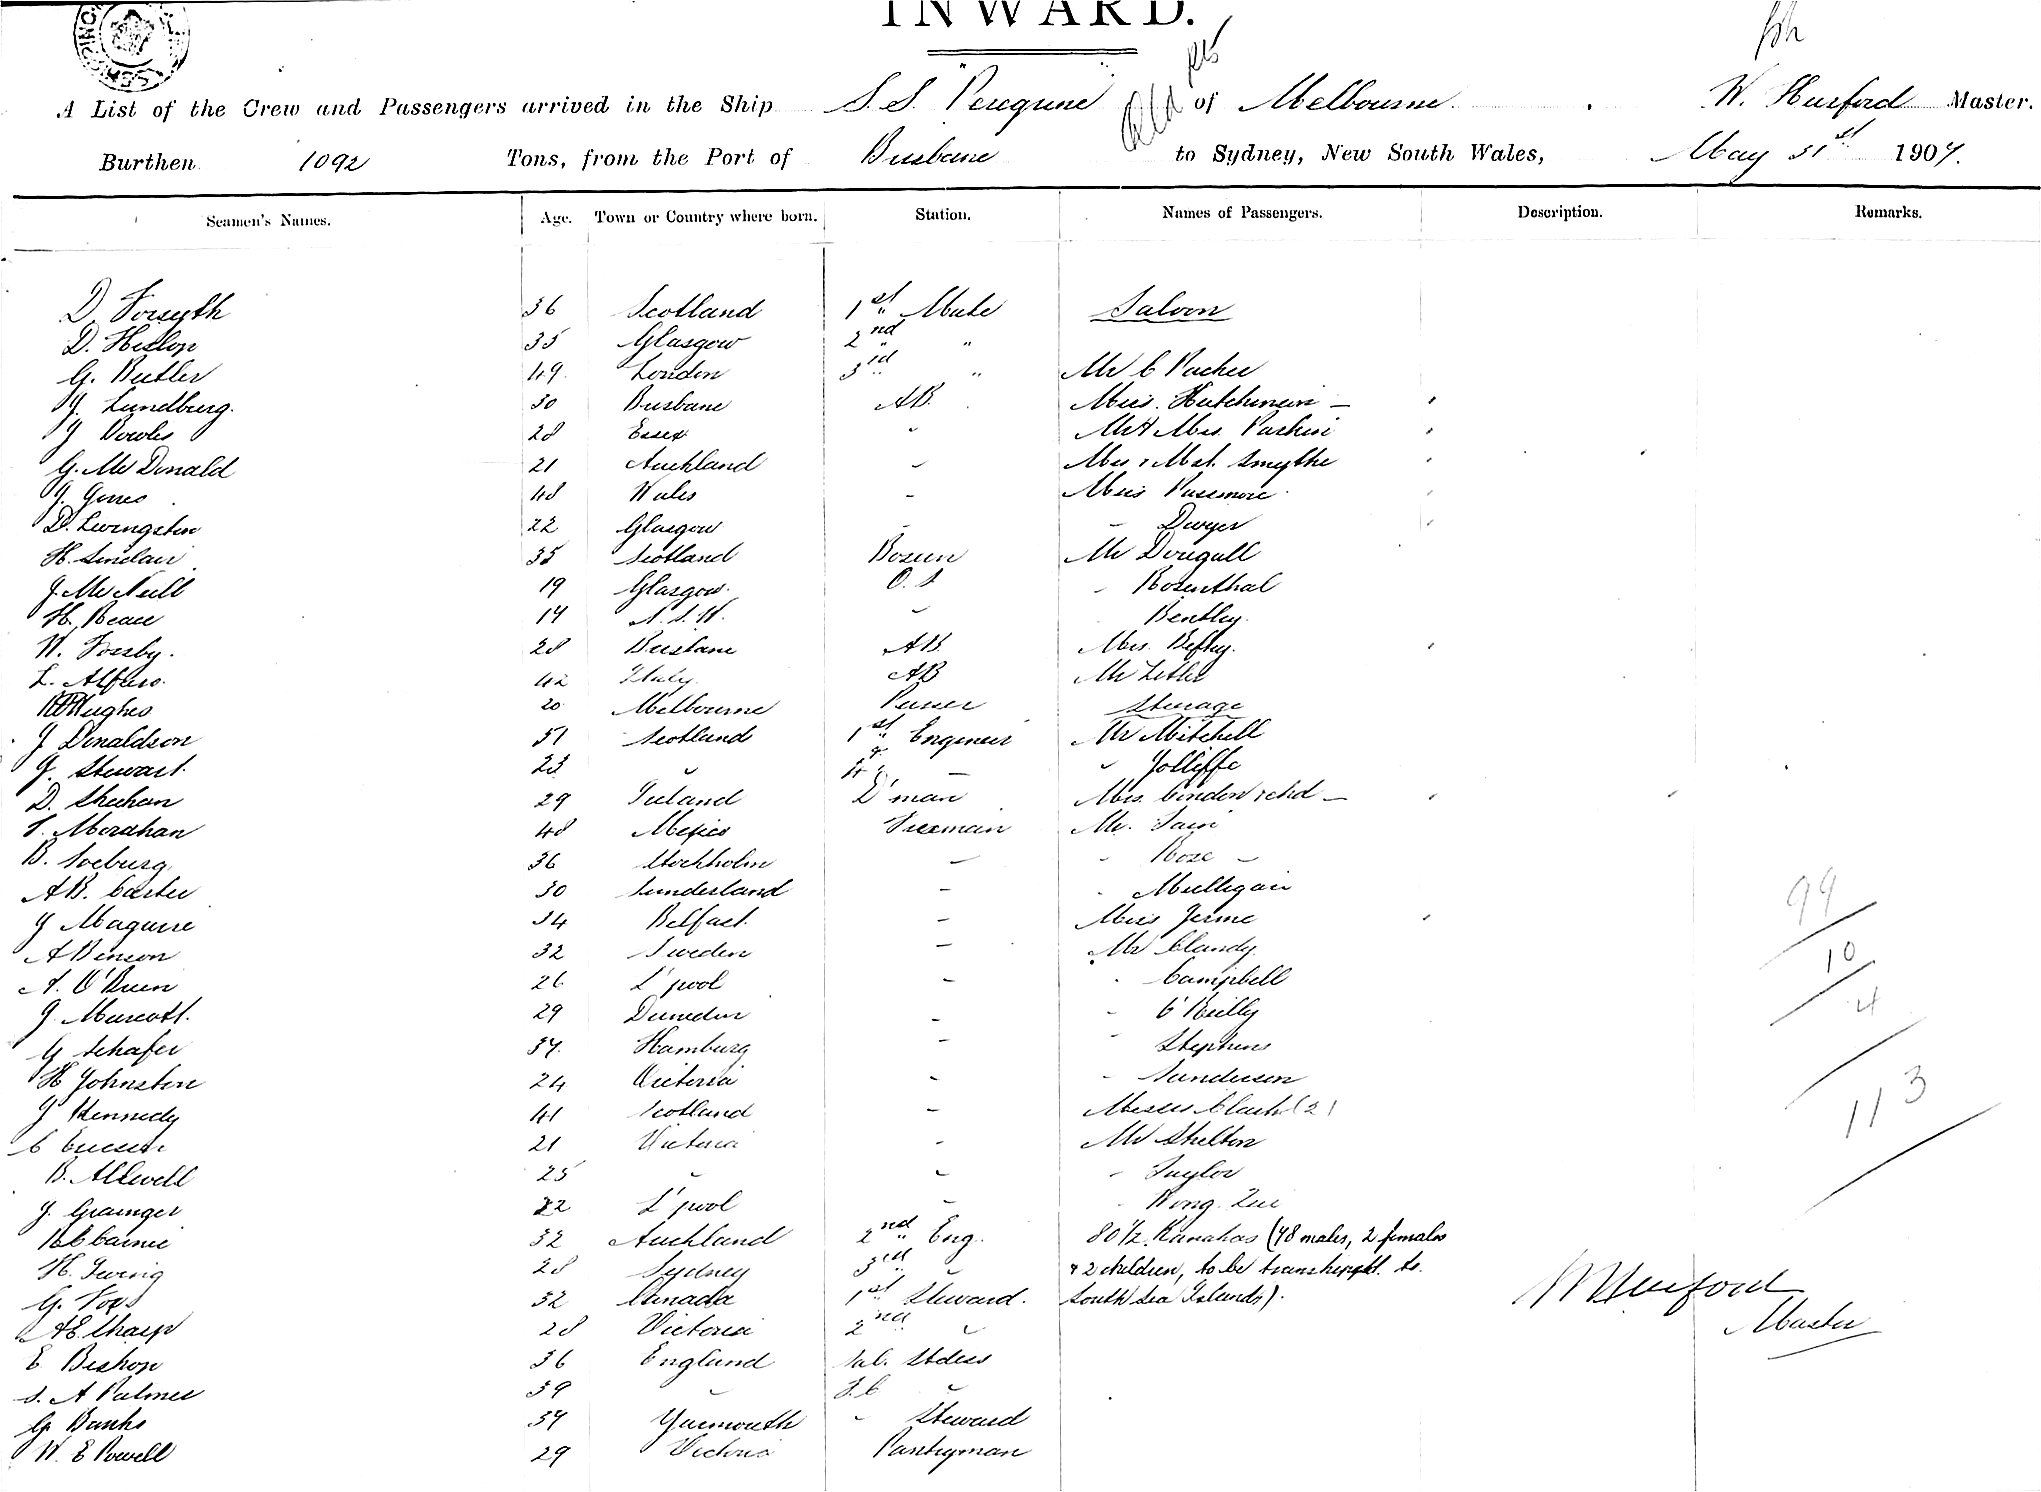 INWARD.
A List of the Crew and Passengers arrived in the Ship S.S. Peregrine of Melbourne. W. Hurford Master.
Burthen 1092 Tons, from the Port of Brisbane to Sydney, New South Wales, May 31st 1907.
Seamen's Names. Age. Town or Country where born. Station. Names of Passengers. Description. Remarks.
D. Forsyth 36 Scotland 1st Mate Saloon
D. Heslop 35 Glasgow 2nd "
G. Butler 49 London 3rd " Mr C Packer
J. Lundburg. 30 Brisbane AB. Miss. Hutchinson -
J Vowles 28 Essex " Mr & Mrs. Parkin
G. McDonald 21 Auckland " Mrs & Mast. Smythe
J. Jones 48 Wales " Miss Passmore
D. Livingston 22 Glasgow " " Dwyer
H. Sinclair 35 Scotland Bosun Mr Dougall
J. McNeill 19 Glasgow. O.S " Rosenthal
H. Peace 17 N.S.W. " Bentley.
W. 28 Brisbane AB. Mrs.
L. Alfaro. 42 Italy. AB Mr
Hughes 20 Melbourne Purser Steerage
J Donaldson 51 Scotland 1st Engineer Mr Mitchell
J. Stewart. 23 " 4 " " Jolliffe
D. Sheehan 29 Ireland D'man Mrs. Cindon & chd -
Morahan 48 Mexico Fireman Mr.
B. Soeburg 36 Stockholm " " Rose -
A B. Carter 30 Sunderland " " Mulligan
J Maguire 34 Belfast. " Miss Jerme
A Benson 32 Sweden " Mr Clandy
A. O'Brien 26 L'pool " " Campbell
J. Marcott. 29 Dunedin " " O'Reilly
G Schafer 37. Hamburg " " Stephens
H Johnston 24 Victoria " " Sanderson
J Kennedy 41 Scotland " Misses Clark (2)
C 21 Victoria " Mr Shelton
B. Allwell 25 " " " Taylor
J. Grainger 22 L'pool " "
Cairnie 32 Auckland 2nd Eng. 80 1/2 Kanakas (78 males, 2 females
H. Ewing 28 Sydney 3rd " & 2 children, to be transhippd. to.
G. Fox 32 Canada 1st Steward. South Sea Islands).
A E Sharp 28 Victoria 2nd "
E Bishop 36 England Sal. Stdess
S. A Palmer 39 " "
G. Banks 37 Yarmouth " Steward
W. E Powell 29 Victoria Pantryman
99
10
4
113
W Hurford
Master